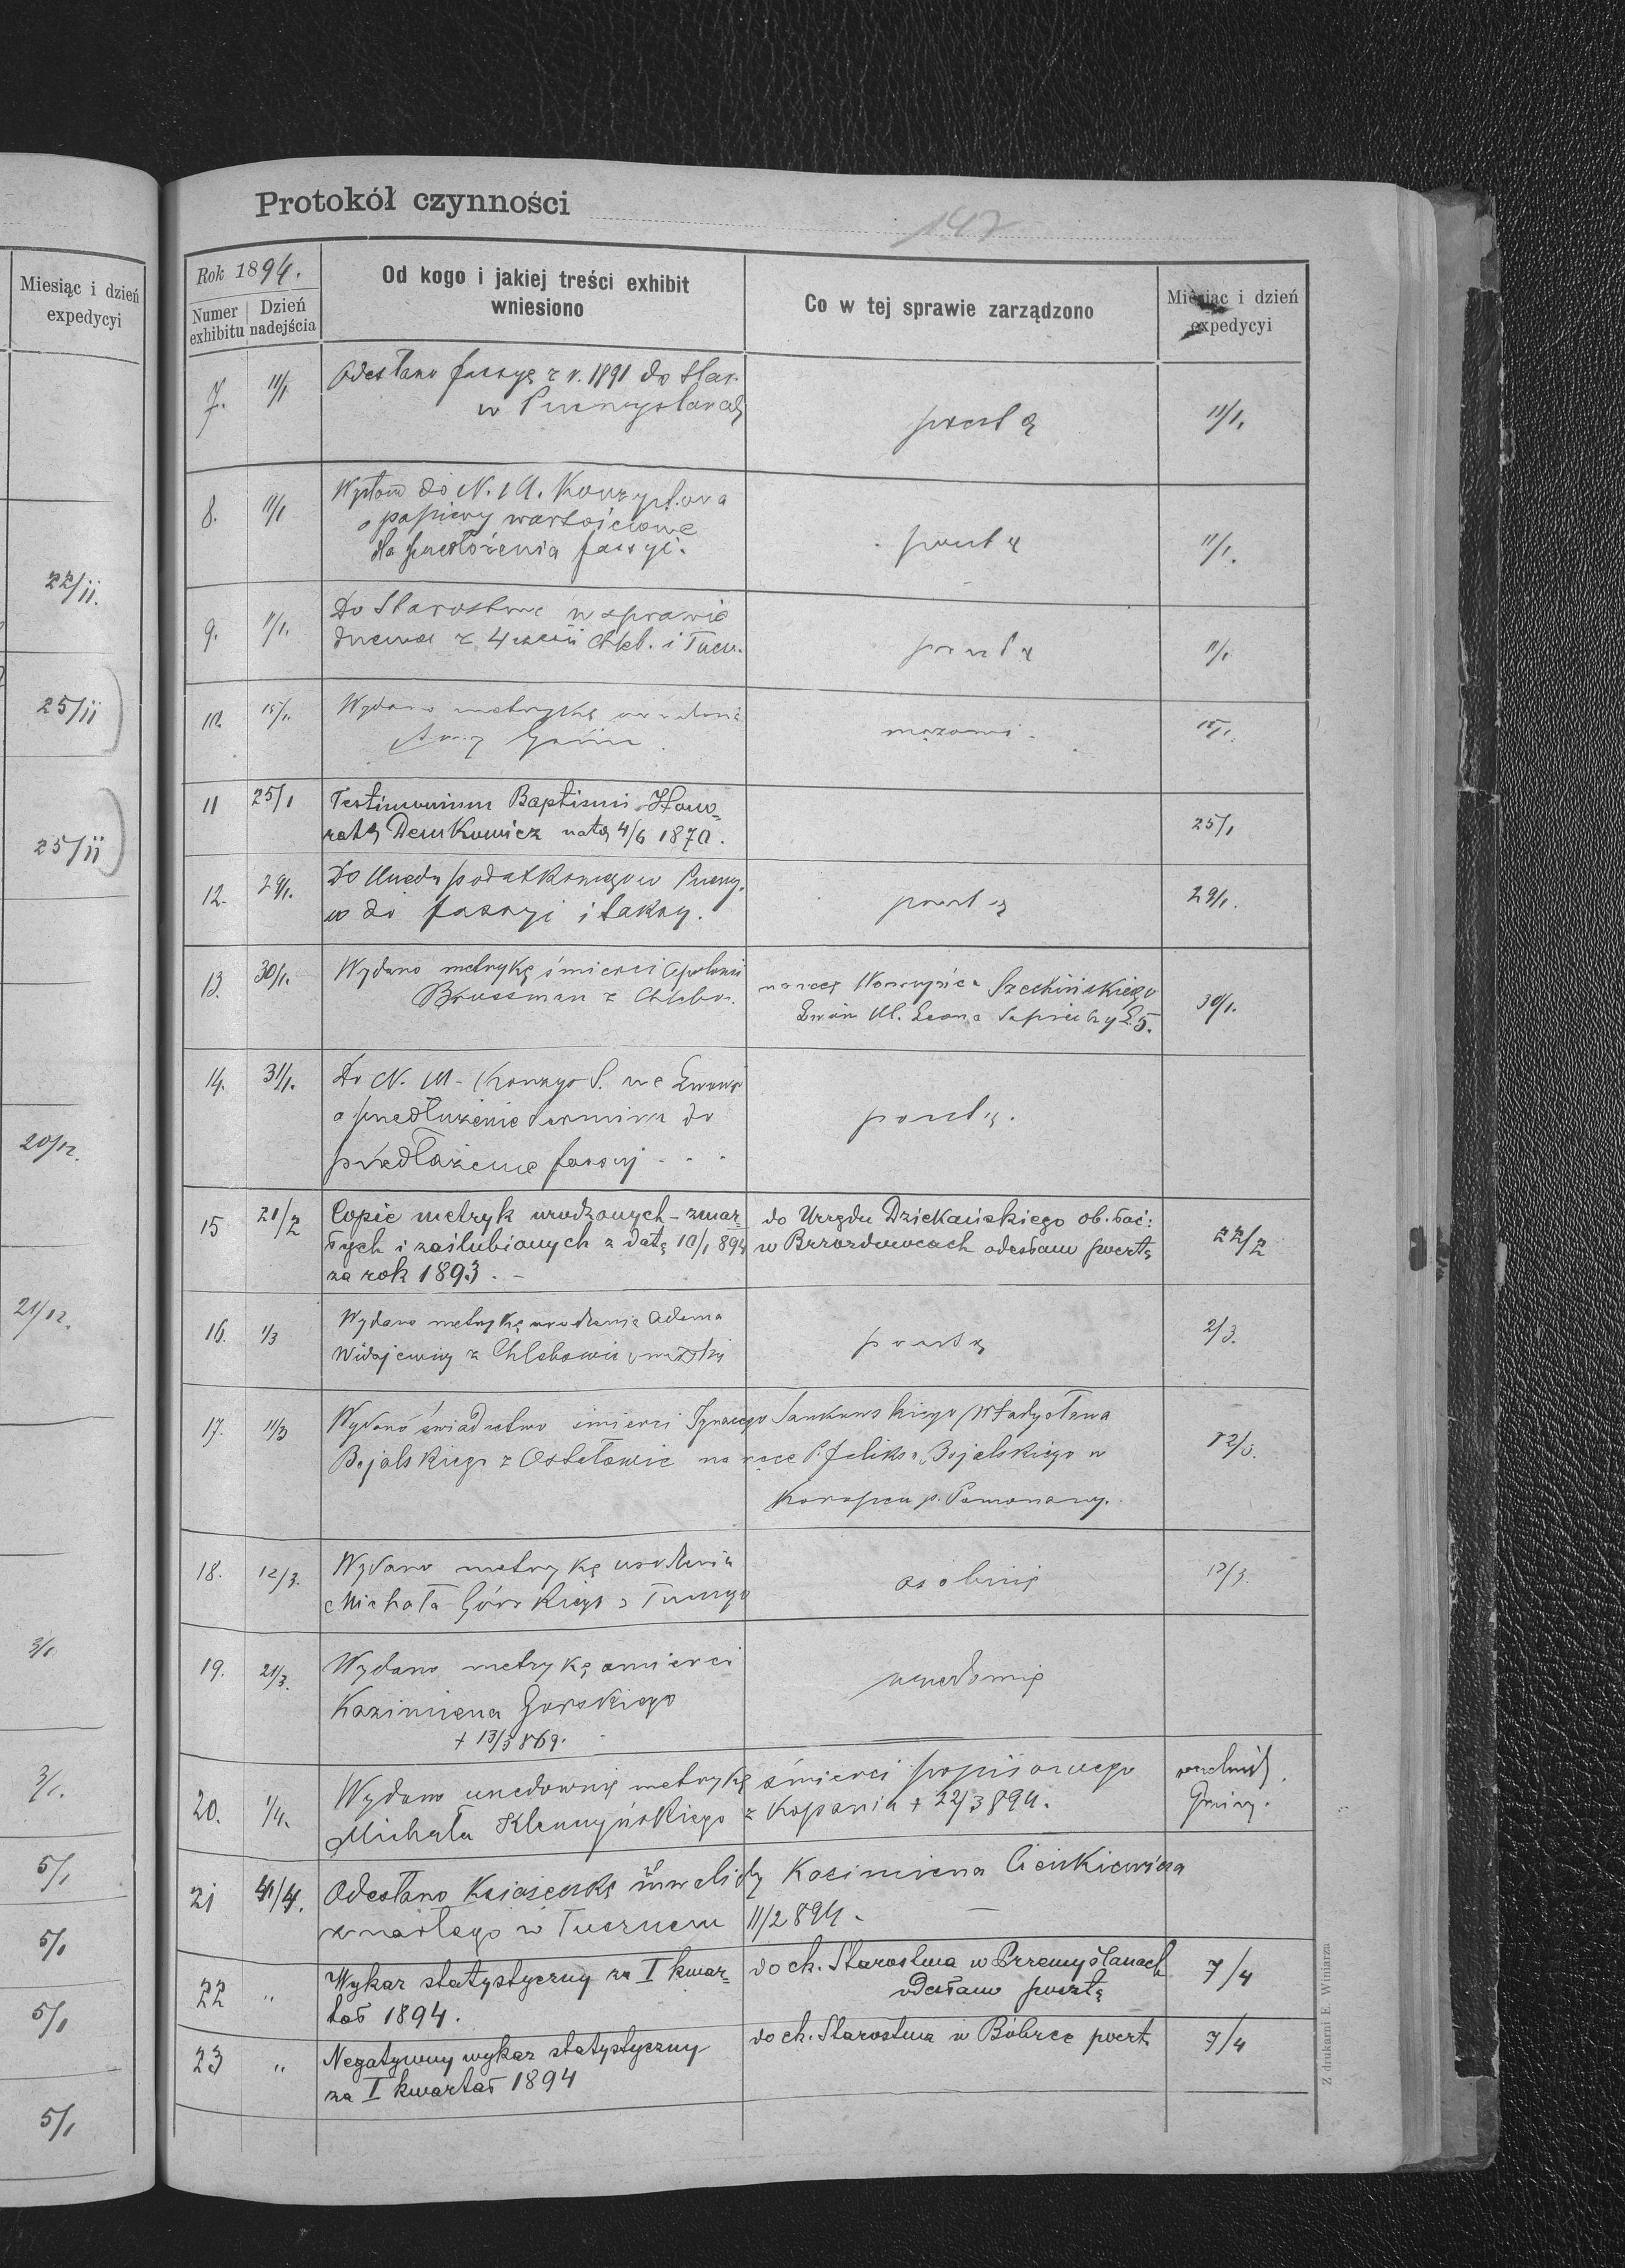 Miesiąc i dzień
expedycyi
22/II.
25/II
25/II
20/12.
21/12.
3/1
3/1.
5/1
5/1
5/1
5/1
Protokół czynności
147
Rok 1894.
Numer exhibitu
Dzień nadejścia
Od kogo i jakiej treści exhibit
wniesiono
Co w tej sprawie zarządzono
Miesiąc i dzień
expedycyi
7. 11/1 Odesłano fassyę z r. 1891 do Star.
w Przemyślanach
pocztą 11/1.
8. 11/1 do N. Konzystora
o papiery wartościowe
dla przedłożenia fassyi.
pocztą 11/1.
9. 11/1. Do Starostwa w sprawie
drzewa z Chleb. i Tucz.
pocztą 11/1
10. 15/1. Wydano metrykę urodzenia
Anny
mężowi. 15/1.
11 25/1 Testimonium Baptismi Hono=
ratą Demkowicz natą 4/6 1870.
25/1
12. 29/1. Do Urzędu podatkowego w Przemy.
do fassyi i taksy.
pocztą 29/1.
13. 30/1. Wydano metrykę śmierci Apolonii
Brussman z Chlebow.
na ręce Szechińskiego
Lwów Ul. Leona Sapiehy L. 5.
30/1.
14. 31/1. Do N. M. Konzys S. we Lwowie
o przedłużenie terminu do
przedłożenia fassyj - - -
pocztą.
15 21/2 Copie metryk urodzonych - zmar=
łych i zaślubionych z datą 10/1 894
za rok 1893. -
do Urzędu Dziekańskiego ob. łać:
w Brzozdowcach odesłano pocztą
22/2
16. 1/3 Wydano metrykę urodzenia Adama
Widajewicz z Chlebowic
pocztą 2/3.
17. 11/3 Wydano świadectwo śmierci Ignacego Jankowskiego Władysława
Bejalskiego z Ostałowic na ręce P. Feliksa Bejalskiego w
Koropcu p. Pomorzany.
12/3.
18. 12/3. Wydano metrykę urodzenia
Michała Górskiego z Tucznego
osobiście 12/3.
19. 21/3. Wydano metrykę śmierci
Kazimierza Gorskiego
+ 13/3 869.
urzędownie
20. 1/4. Wydano urzędownie metrykę śmierci popisowego
Michała Klemczyńskiego z Kopania + 22/3 894.
Gminy.
21 4/4. Odesłano Książeczkę inwalidy Kazimierza Cieńkiewicza
zmarłego w Tucznem 11/2 894. -
22 " Wykaz statystyczny za I kwar=
tał 1894.
do ck. Starostwa w Przemyślanach
odesłano pocztą
7/4
23 " Negatywny wykaz statystyczny
za I kwartał 1894
do ck. Starostwa w Bóbrce poczt.
7/4
Z drukarni E. Winiarza